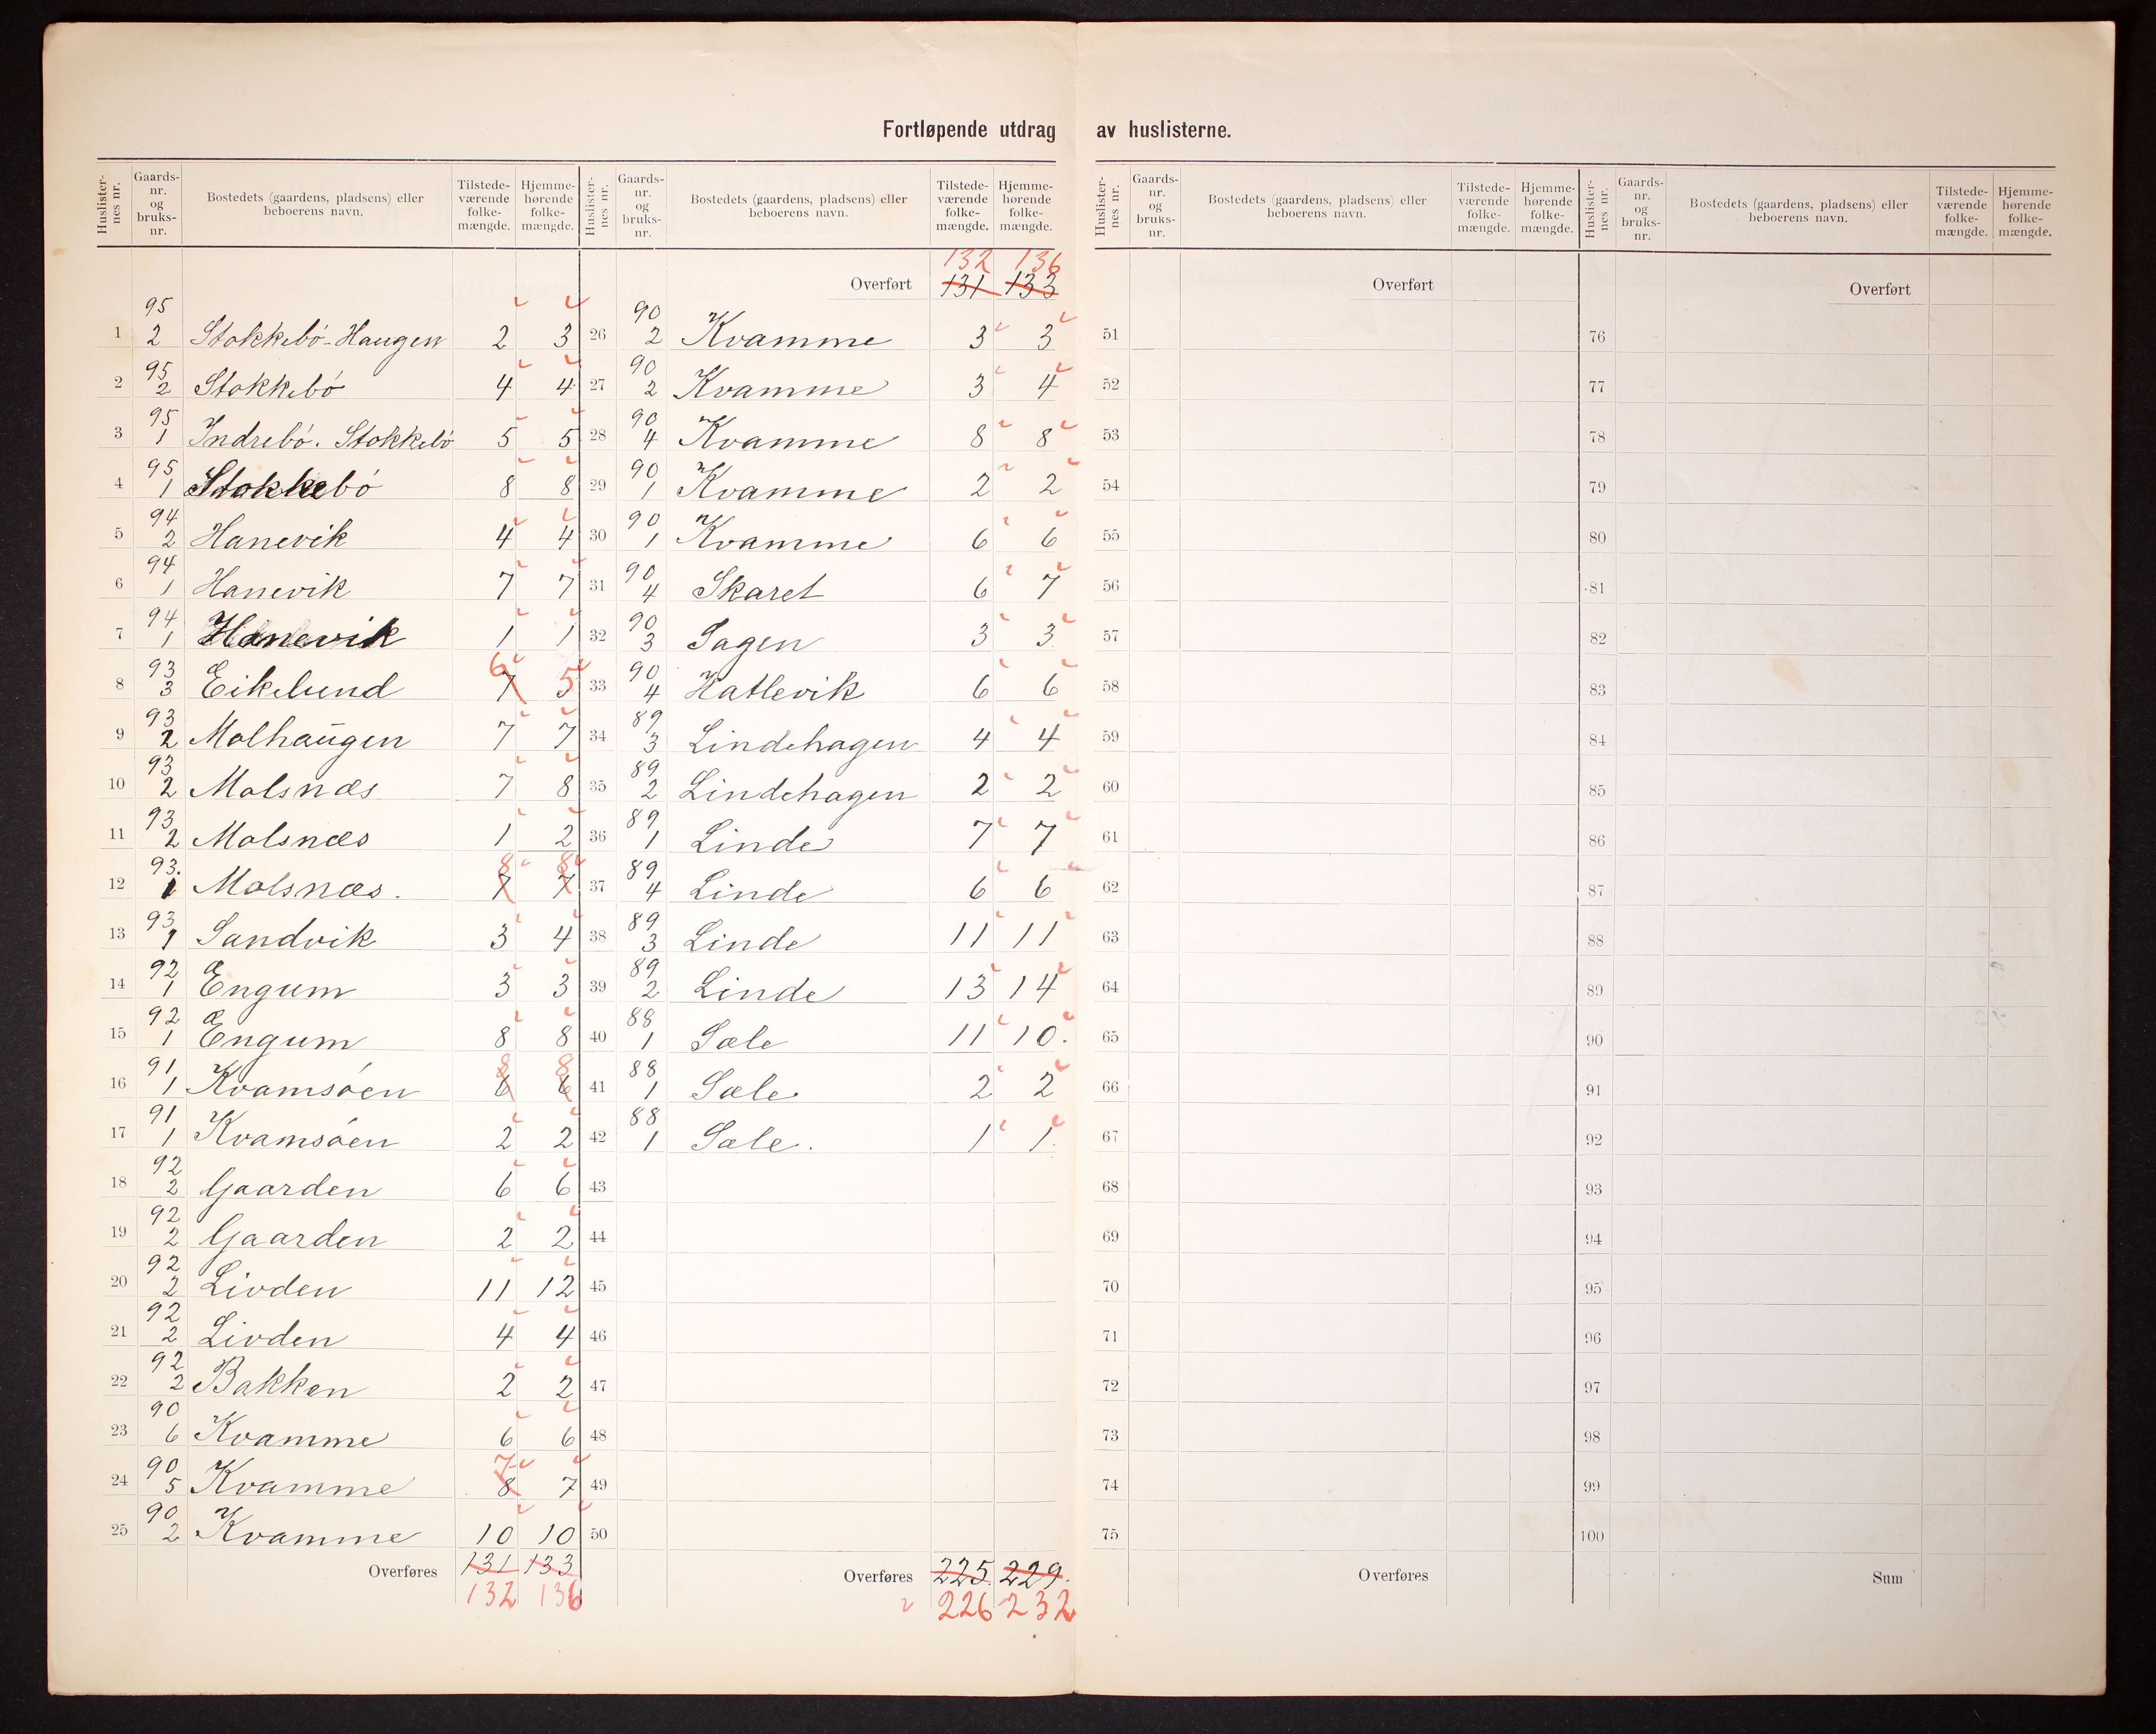 Fortløpende utdrag av huslisterne.
Huslisternes nr. Gaards-nr. og bruks-nr. Bostedets (gaardens, pladsens) eller beboerens navn. Tilstede-værende folke-mængde. Hjemme-hørende folke-mængde.
1 95 2 Stokkebó-Haugen 2 3
2 95 2 Stokkebó 4 4
3 95 1 Indrebó. Stokkebó 5 5
4 95 1 Stokkebó 8 8
5 94 2 Hanevik 4 4
6 94 1 Hanevik 7 7
7 94 1 Hanevik 1 1
8 93 3 Eikelund 7 6 5
9 93 2 Molhaugen 7 7
10 93 2 Molsnæs 7 8
11 93 2 Molsnæs 1 2
12 93. 1 Molsnæs. 7 8 7 8
13 93 1 Sandvik 3 4
14 92 1 Engum 3 3
15 92 1 Engum 8 8
16 91 1 Kvamsóen 6 8 6 8
17 91 1 Kvamsóen 2 2
18 92 2 Gaarden 6 6
19 92 2 Gaarden 2 2
20 92 2 Livden 11 12
21 92 2 Livden 4 4
22 92 2 Bakken 2 2
23 90 6 Kvamme 6 6
24 90 5 Kvamme 8 7 7
25 90 2 Kvamme 10 10
Overføres 131 133
132 136
Huslisternes nr. Gaards-nr. og bruks-nr. Bostedets (gaardens, pladsens) eller beboerens navn. Tilstede-værende folke-mængde. Hjemme-hørende folke-mængde.
132 136
Overført 131 133
26 90 2 Kvamme 3 3
27 90 2 Kvamme 3 4
28 90 4 Kvamme 8 8
29 90 1 Kvamme 2 2
30 90 1 Kvamme 6 6
31 90 4 Skaret 6 7
32 90 3 Sagen 3 3
33 90 4 Hatlevik 6 6
34 89 3 Lindehagen 4 4
35 89 2 Lindehagen 2 2
36 89 1 Linde 7 7
37 89 4 Linde 6 6
38 89 3 Linde 11 11
39 89 2 Linde 13 14
40 88 1 Sæle 11 10.
41 88 1 Sæle 2 2
42 88 1 Sæle. 1 1.
43
44
45
46
47
48
49
50
Overføres 225. 229.
226 232
Huslisternes nr. Gaards-nr. og bruks-nr. Bostedets (gaardens, pladsens) eller beboerens navn. Tilstede-værende folke-mængde. Hjemme-hørende folke-mængde.
Overført
51
52
53
54
55
56
57
58
59
60
61
62
63
64
65
66
67
68
69
70
71
72
73
74
75
Overføres
Huslisternes nr. Gaards-nr. og bruks-nr. Bostedets (gaardens, pladsens) eller beboerens navn. Tilstede-værende folke-mængde. Hjemme-hørende folke-mængde.
Overført
76
77
78
79
80
81
82
83
84
85
86
87
88
89
90
91
92
93
94
95
96
97
98
99
100
Sum